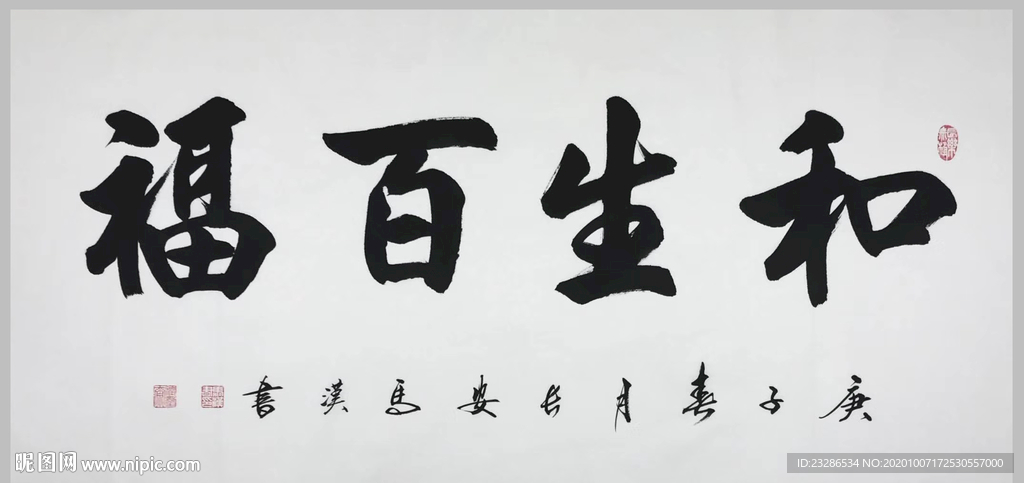 和生百福
庚子春月长安马汉书
昵图网 www.nipic.com
ID:23286534 NO:20201007172530557000